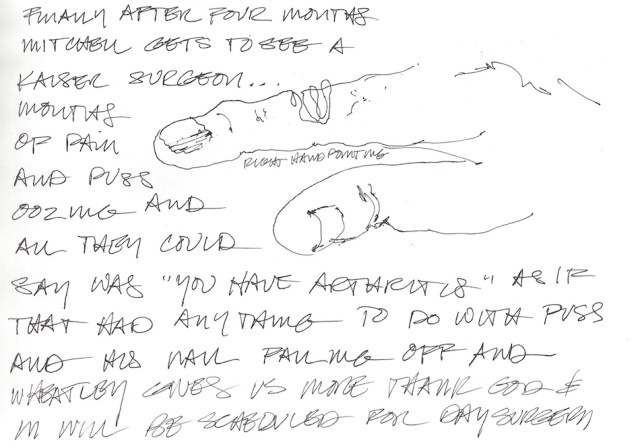 FINALLY AFTER FOUR MONTHS
MITCHELL GETS TO SEE A
KAISER SURGEON...
MONTHS
OF PAIN
RIGHT HAND POINTING
AND PUSS
OOZING AND
ALL THEY COULD
SAY WAS "YOU HAVE ARTHARITIS" AS IF
THAT HAD ANYTHING TO DO WITH PUSS
AND HIS NAIL FALLING OFF AND
WHEATLEY GIVES US MORE THANK GOD &
M WILL BE SCHEDULED FOR DAY SURGERY